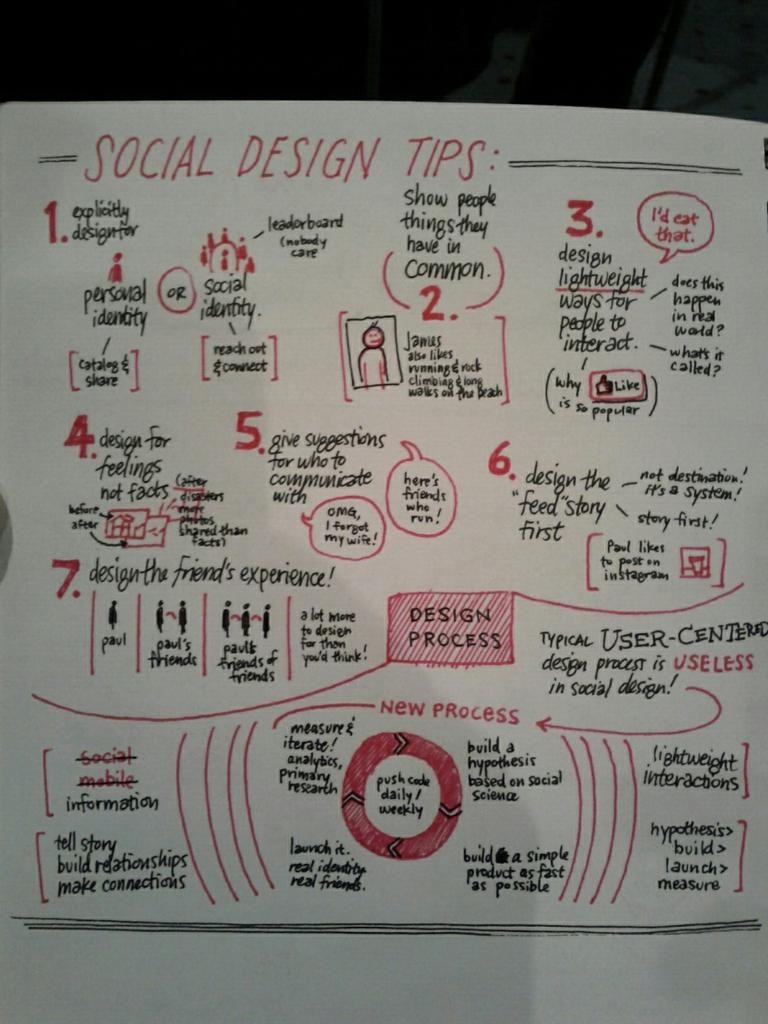 SOCIAL DESIGN TIPS:
1. explicitly
design for
personal
identity
[catalog &
share]
OR
social
identity.
[reach out
& connect]
leaderboard
(nobody
care
show people
things they
have in
common.
2.
James
also likes
running & rock
climbing & long
walks on the beach
3.
I'd eat
that.
design
lightweight
ways for
people to
interact.
does this
happen
in real
world?
what's it
called?
(why Like
is so popular)
4. design for
feelings
not facts
(after
disasters
more
photos
shared than
facts)
before
after
5. give suggestions
for who to
communicate
with
OMG,
I forgot
my wife!
here's
friends
who
run!
6. design the
"feed" story
first
not destination!
it's a system!
story first!
[Paul likes
to post on
instagram]
7. design the friend's experience!
paul
paul's
friends
paul's
friends of
friends
a lot more
to design
for than
you'd think!
DESIGN
PROCESS
TYPICAL USER-CENTERED
design process is USELESS
in social design!
NEW PROCESS
social
mobile
information
tell story
build relationships
make connections
measure &
iterate!
analytics,
primary
research
push code
daily/
weekly
build a
hypothesis
based on social
science
launch it.
real identity
real friends.
build a simple
product as fast
as possible
lightweight
interactions
hypothesis>
build>
launch>
measure